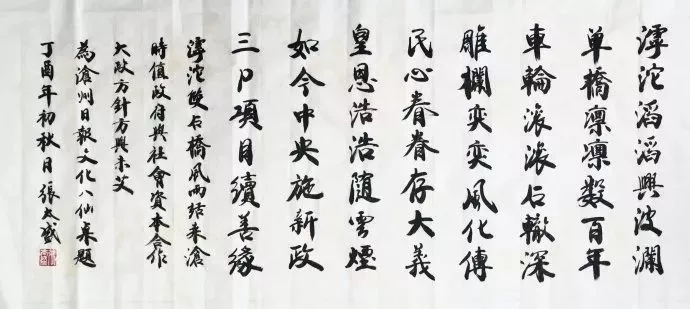 滹沱滔滔興波瀾
单橋凛凛数百年
車輪滚滚石轍深
雕欄奕奕風化傳
民心眷眷存大義
皇恩浩浩隨雲煙
如今中央施新政
三P項目續善緣
滹沱雙石橋風雨結来滄
時值政府與社會資本合作
大政方針方興未艾
為滄州日報文化八仙桌題
丁酉年初秋月張太盛